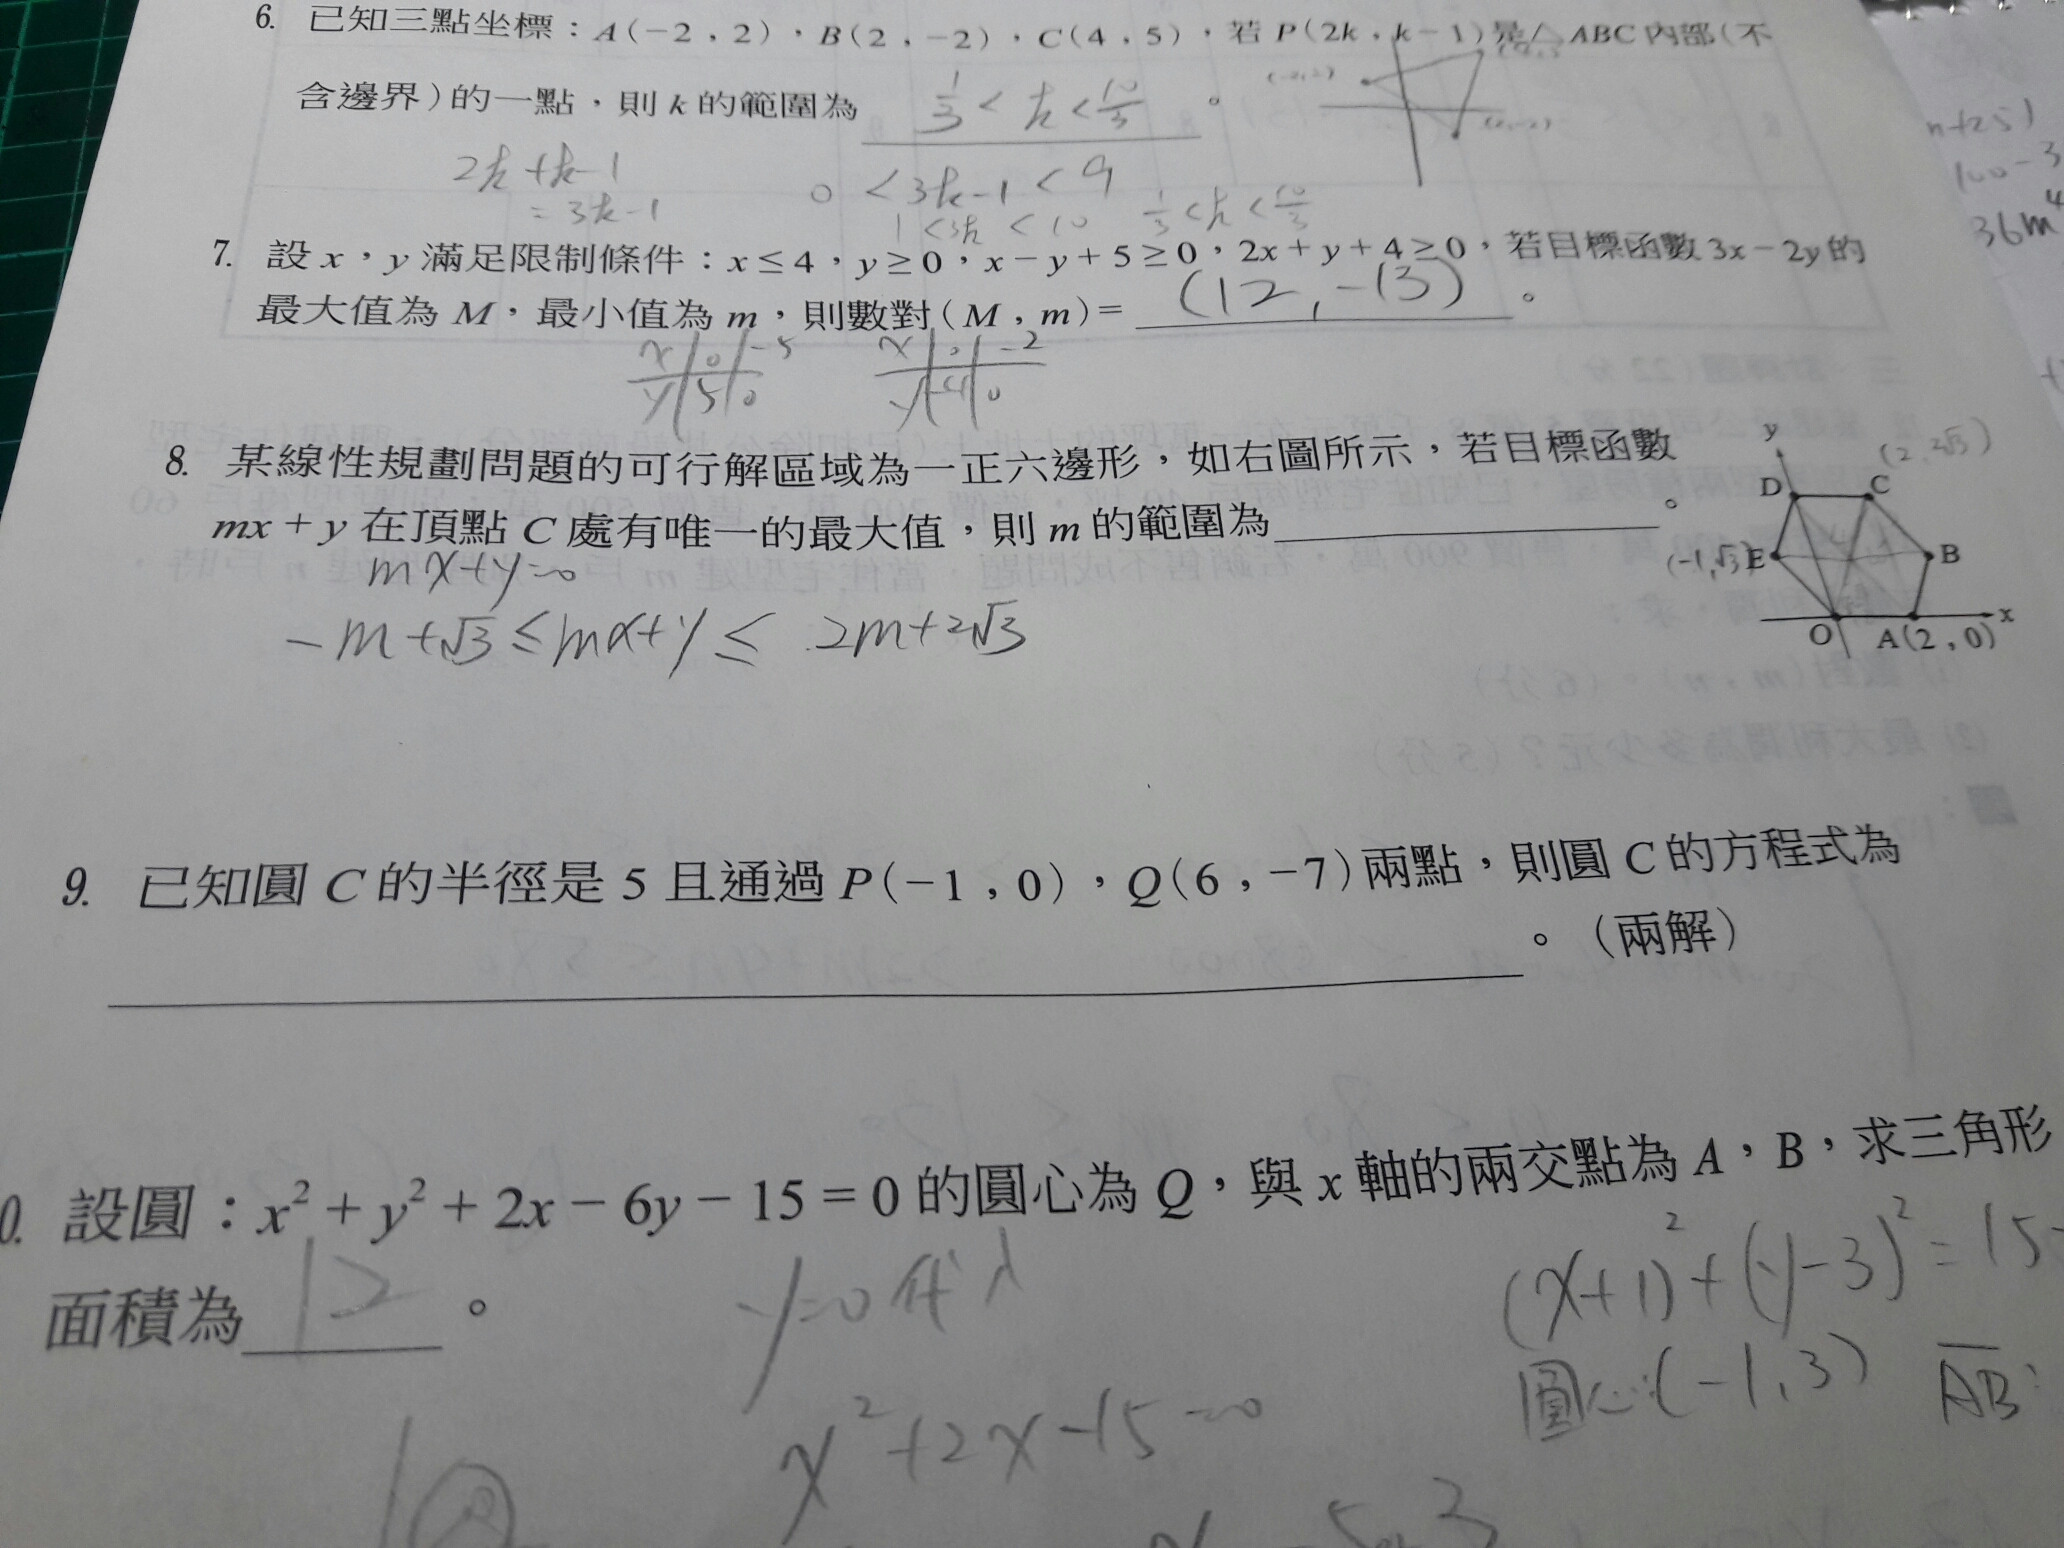 6. 已知三點坐標：A(-2，2)，B(2，-2)，C(4，5)，若P(2k，k-1)是△ABC內部(不
含邊界)的一點，則k的範圍為 1/3 < k < 10/3 。
(2，-2)
2k+k-1
= 3k-1
0 < 3k-1 < 9
1 < 3k < 10
1/3 < k < 10/3
7. 設x，y滿足限制條件：x≤4，y≥0，x-y+5≥0，2x+y+4≥0，若目標函數3x-2y的
最大值為M，最小值為m，則數對(M，m)= (12, -13) 。
x 0 -5
y 5 0
x 0 -2
y -4 0
8. 某線性規劃問題的可行解區域為一正六邊形，如右圖所示，若目標函數
mx+y在頂點C處有唯一的最大值，則m的範圍為 。
mx+y=0
-m+√3 ≤ mx+y ≤ 2m+2√3
y
(2, 2√3)
D C
(-1,√3) E B
O A(2，0) x
9. 已知圓C的半徑是5且通過P(-1，0)，Q(6，-7)兩點，則圓C的方程式為
。(兩解)
0. 設圓：x²+y²+2x-6y-15=0的圓心為Q，與x軸的兩交點為A，B，求三角形
面積為 12 。
y=0代入
x²+2x-15=0
(x+1)²+(y-3)²=15
圓心:(-1,3)
AB:
n+25)
100-3
36m⁴